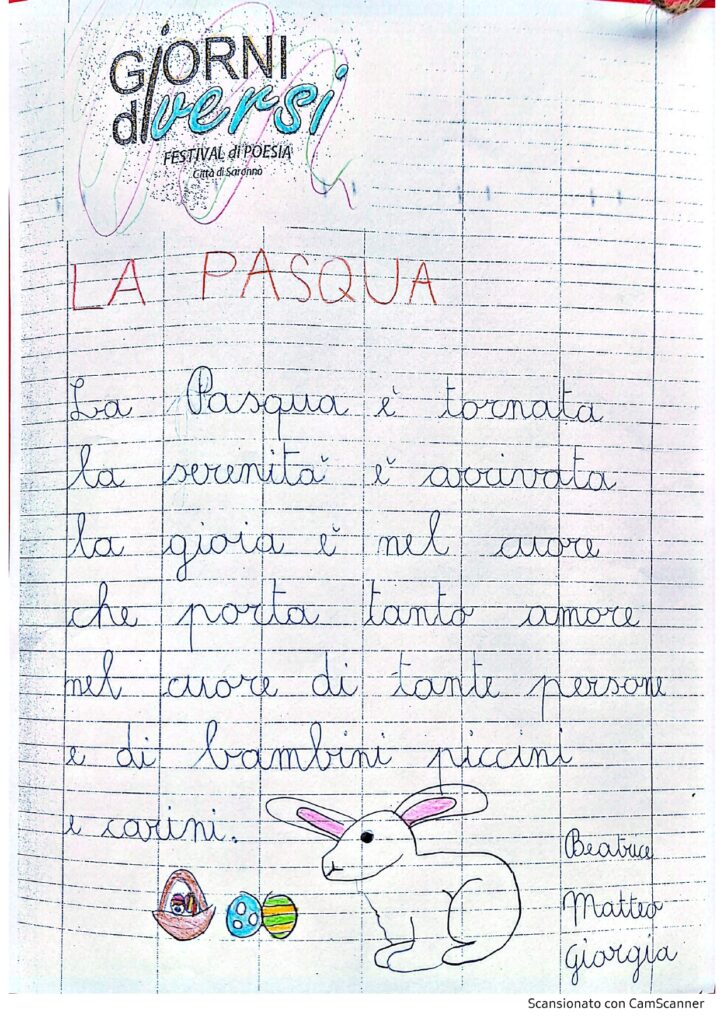 GiORNI
diversi
FESTIVAL di POESIA
Città di Saronno
LA PASQUA
La Pasqua è tornata
la serenità è arrivata
la gioia è nel cuore
che porta tanto amore
nel cuore di tante persone
e di bambini piccini
e carini.
Beatrice
Matteo
Giorgia
Scansionato con CamScanner